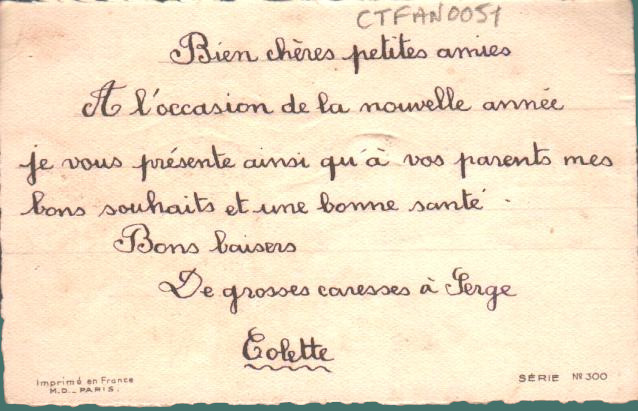 CTFAN0051
Bien chères petites amies
A l'occasion de la nouvelle année
je vous présente ainsi qu'à vos parents mes
bons souhaits et une bonne santé.
Bons baisers
De grosses caresses à Serge
Colette
Imprimé en France
M.D._PARIS.
SÉRIE Nº 300